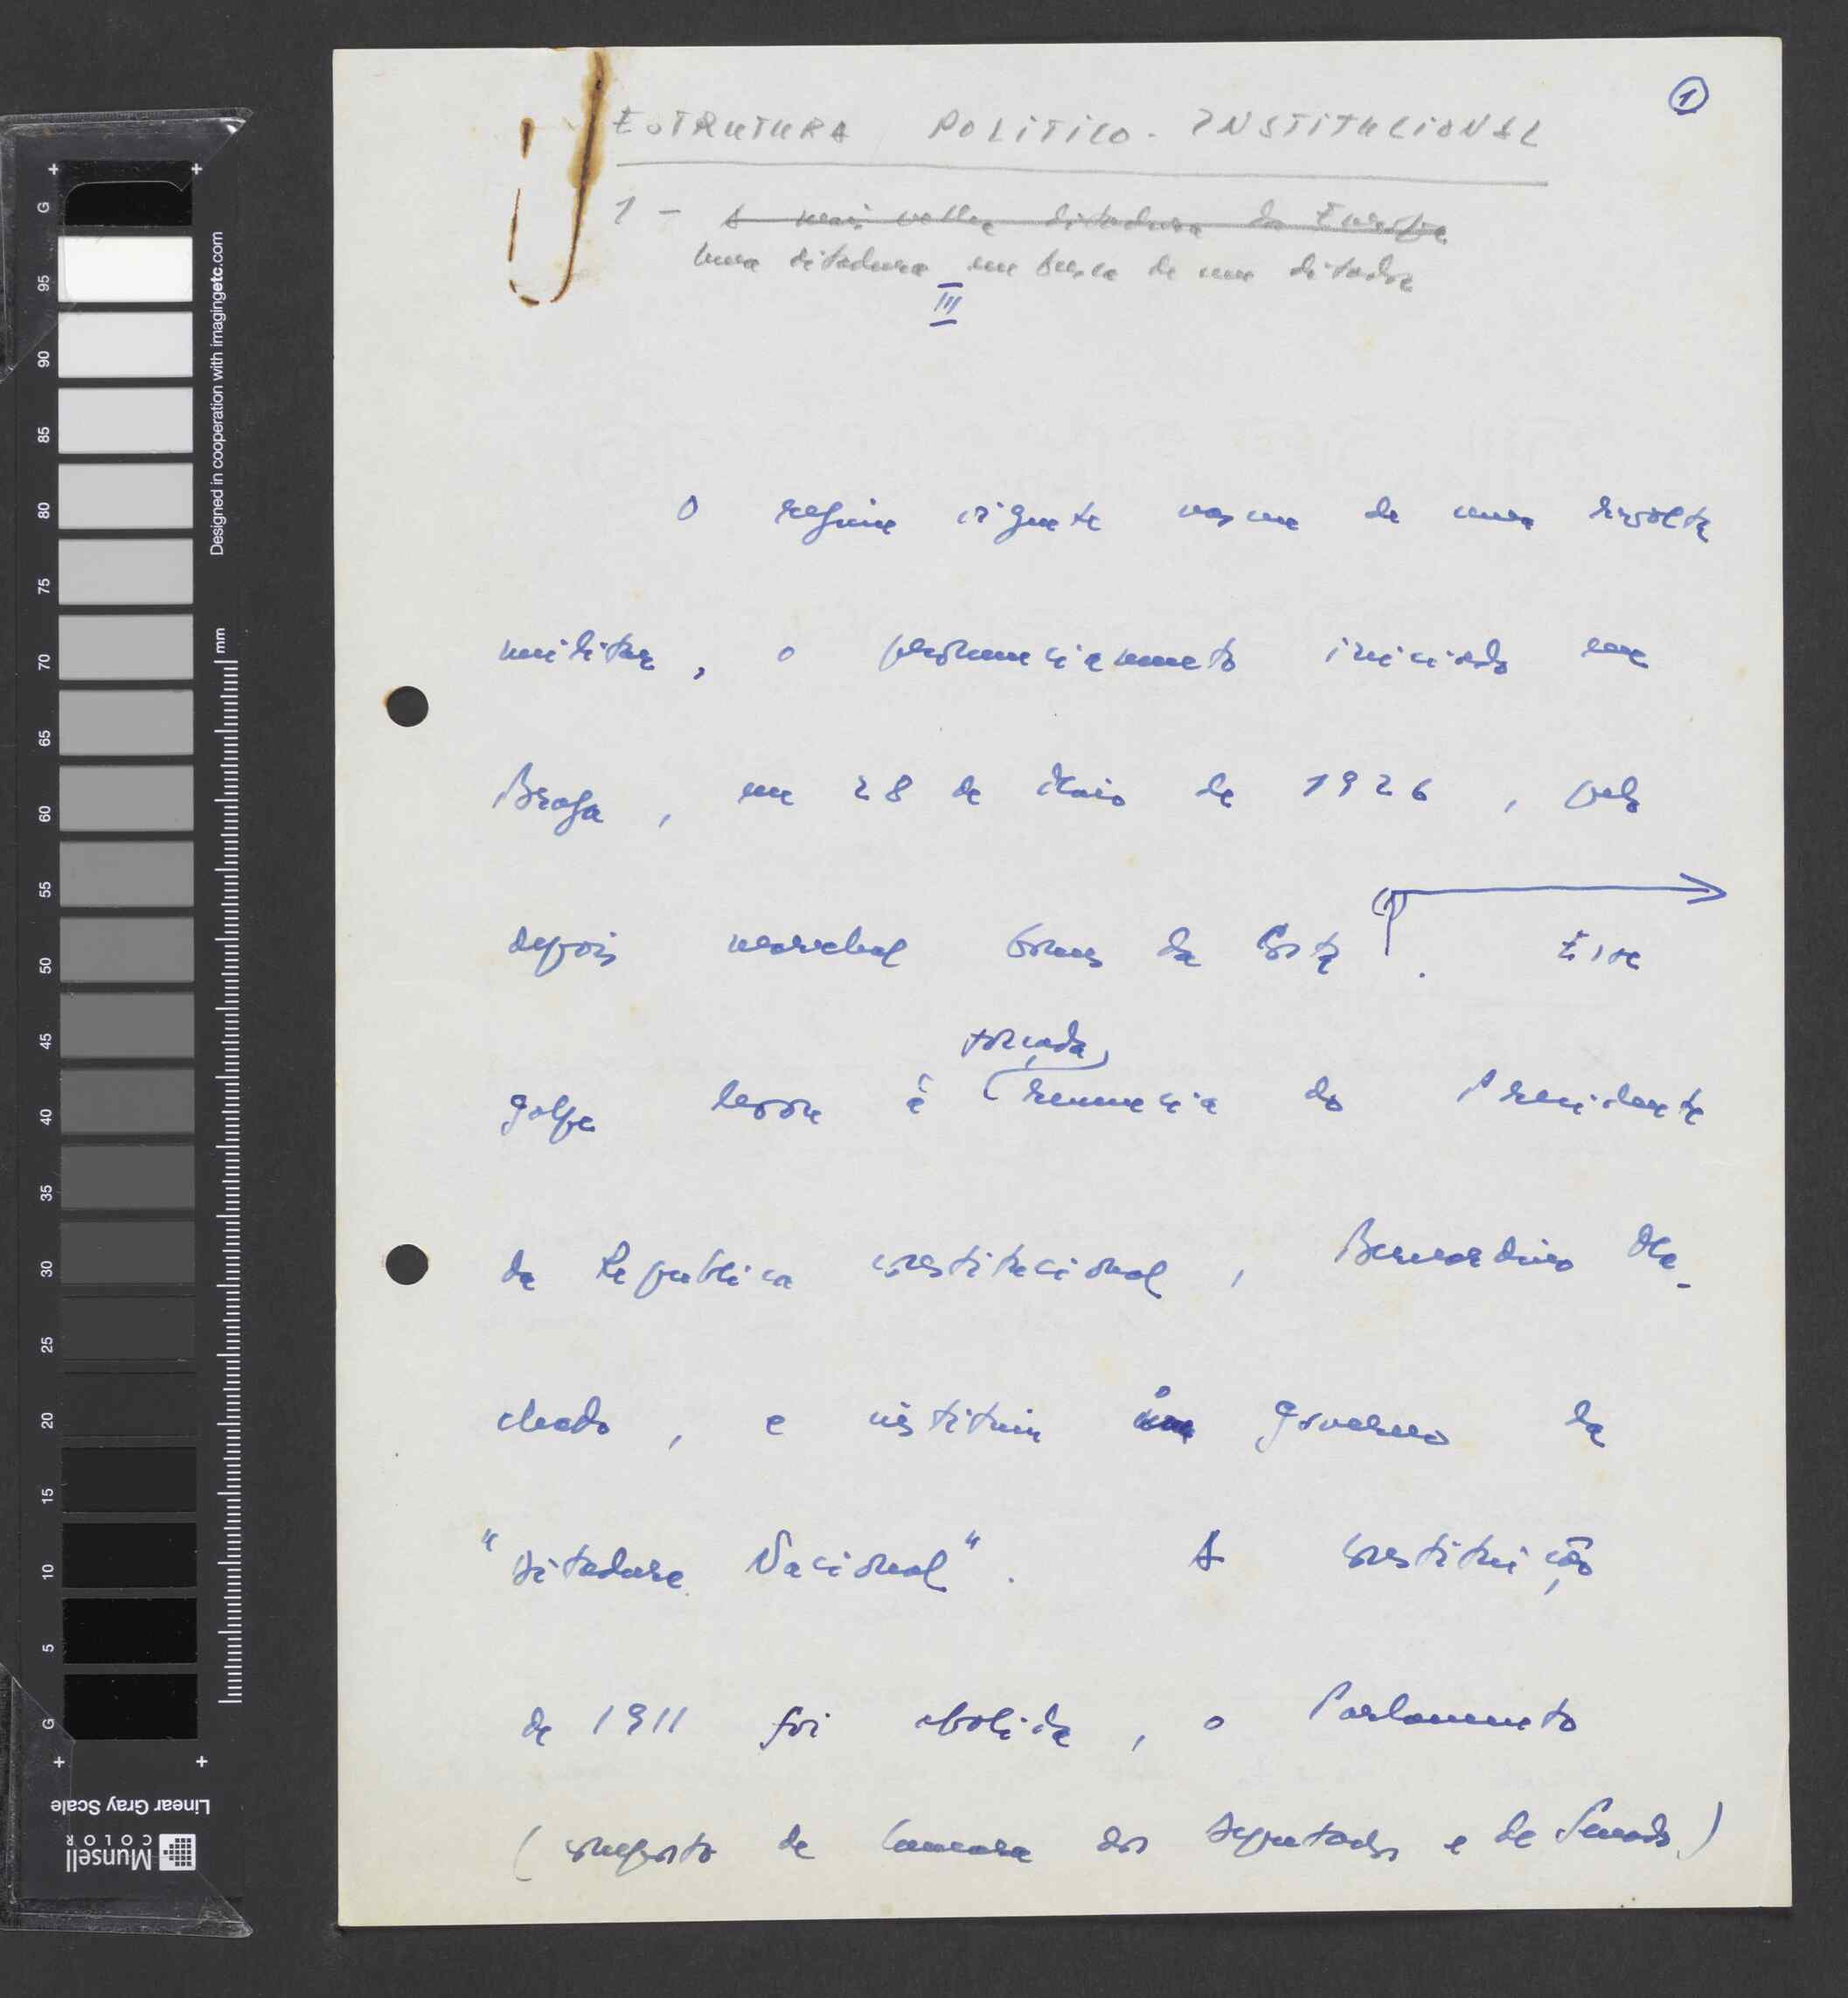 1
ESTRUTURA POLITICO-INSTITUCIONAL
1 - A mais velha ditadura da Europa
Uma ditadura em busca de um ditador
III
O regime vigente nasceu de uma revolta
militar, o pronunciamento iniciado em
Braga, em 28 de Maio de 1926, pelo
depois marechal Gomes da Costa. Esse
forçada
golpe levou à renuncia do Presidente
da Republica constitucional, Bernardino Ma-
chado, e instituiu o governo da
"Ditadura Nacional". A constituição
de 1911 foi abolida, o Parlamento
(composto de Camara dos Deputados e de Senado)
+ +
G 95 90 85 80 75 70 65 60 55 50 45 40 35 30 25 20 15 10 5 G
+ +
mm
Designed in cooperation with imagingetc.com
Linear Gray Scale
Munsell
COLOR